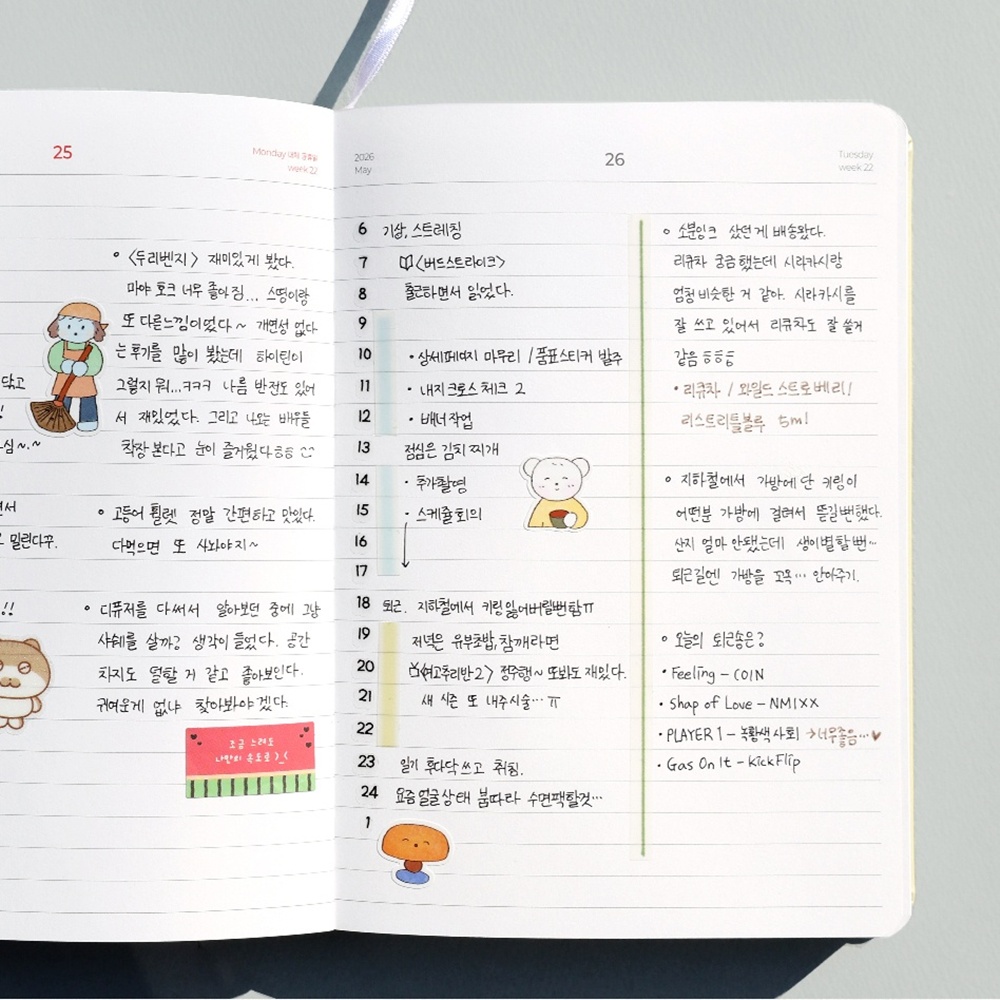 25
Monday 대체공휴일
week 22
〈두리벤지〉 재미있게 봤다.
마야 호크 너무 좋아짐... 스띵이랑
또 다른느낌이었다~ 개연성 없다
는 후기를 많이 봤는데 하이틴이
그렇지 뭐...ㅋㅋㅋ 나름 반전도 있어
서 재밌었다. 그리고 나오는 배우들
착장 본다고 눈이 즐거웠다ㅎㅎ
고등어 필렛 정말 간편하고 맛있다.
다먹으면 또 사놔야지~
디퓨저를 다써서 알아보던 중에 그냥
샤쉐를 살까? 생각이 들었다. 공간
차지도 덜할 거 같고 좋아보인다.
귀여운게 없나 찾아봐야겠다.
닦고
밀린다꾸.
!!
조금 느려도
나만의 속도로 >_<
2026
May
26
Tuesday
week 22
6 기상, 스트레칭
7 〈버드스트라이크〉
8 출근하면서 읽었다.
9
10 • 상세페이지 마무리 / 품표스티커 발주
11 • 내지크로스체크 2
12 • 배너작업
13 점심은 김치찌개
14 • 추가촬영
15 • 스케줄회의
16
17
18 퇴근. 지하철에서 키링잃어버릴뻔함ㅠ
19 저녁은 유부초밥, 참깨라면
20 〈여고추리반2〉 정주행~ 또봐도 재밌다.
21 새 시즌 또 내주시술… ㅠ
22
23 일기 후다닥쓰고 취침.
24 요즘얼굴상태 붐따라 수면팩할것…
1
소분잉크 샀던게 배송왔다.
리큐차 궁금했는데 시라카시랑
엄청비슷한 거 같아. 시라카시를
잘 쓰고 있어서 리큐차도 잘 쓸거
같음ㅎㅎㅎ
• 리큐차 / 와일드 스트로베리 /
리스트리틀블루 5ml
지하철에서 가방에 단 키링이
어떤분 가방에 걸려서 뜯길뻔했다.
산지 얼마 안됐는데 생이별할뻔…
퇴근길엔 가방을 꼬옥… 안아주기.
오늘의 퇴근송은?
• Feeling - COIN
• Shap of Love - NMIXX
• PLAYER 1 - 녹황색사회 → 너무좋음…♥
• Gas On It - KickFlip